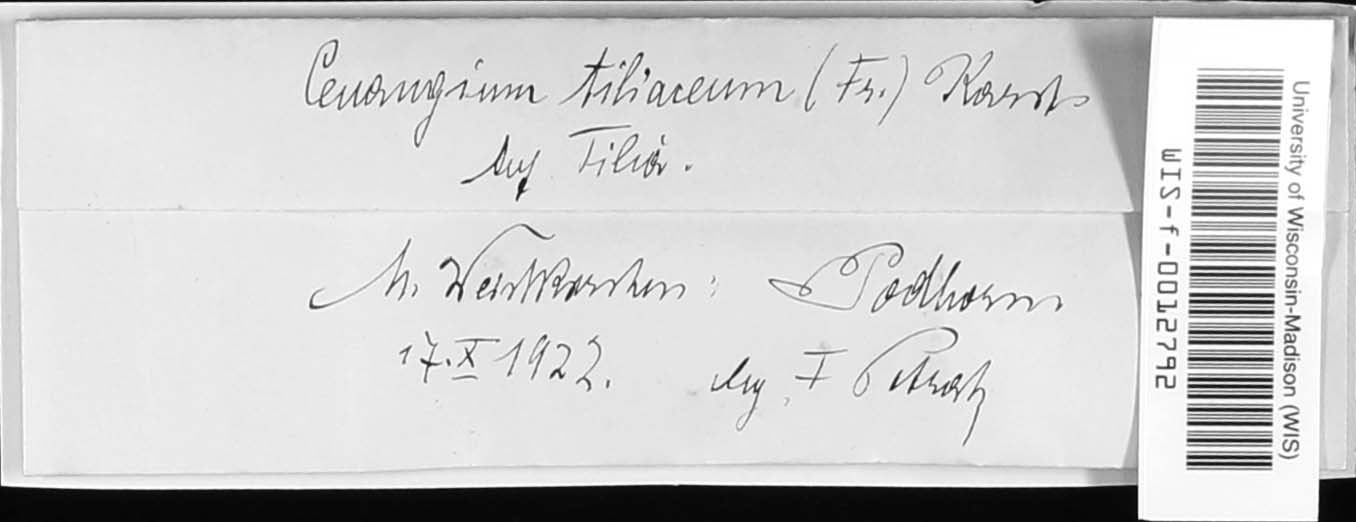 Cenangium tiliaceum (Fr.) Karst
Auf Tilia.
M. Weisskirchen: Podhorn
17.X 1922. leg. F Petrak
University of Wisconsin-Madison (WIS)
WIS-f-0012792